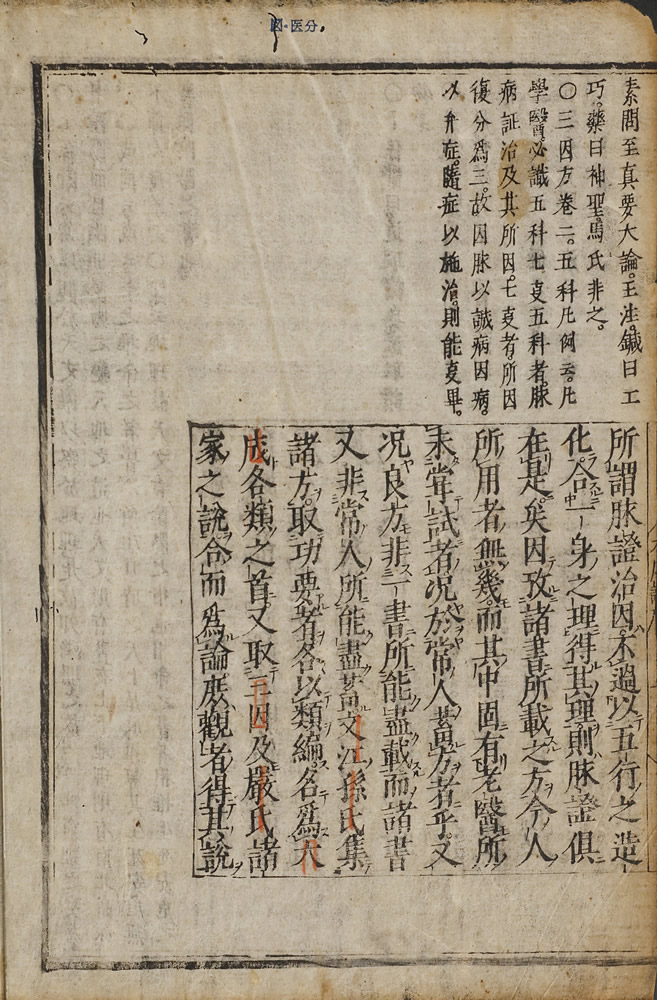 図・医分.
素問至真要大論。王注。鍼曰工
巧。藥曰神聖。馬氏非之。
〇三因方卷二。五科凡例云。凡
學醫。必識五科七夏五科者。脉
病証治及其所因。七夏者。所因
復分爲三。故因脉以識病因病。
以弁症。隨症以施治。則能夏畢。
所謂脉證治因。不過以五行之造
化合一身之理得其理則脉證俱
在是矣因攷諸書所載之方今人
所用者無幾。而其中固有老醫所
未嘗試者況於常人昔方者乎。又
況良方非一書所能盡載而諸書
又非常人所能盡昔文江孫氏集
諸方。取功要者各以類編名爲大
成各類之首。又取三因及嚴氏諸
家之說合而爲論庶觀者得其說